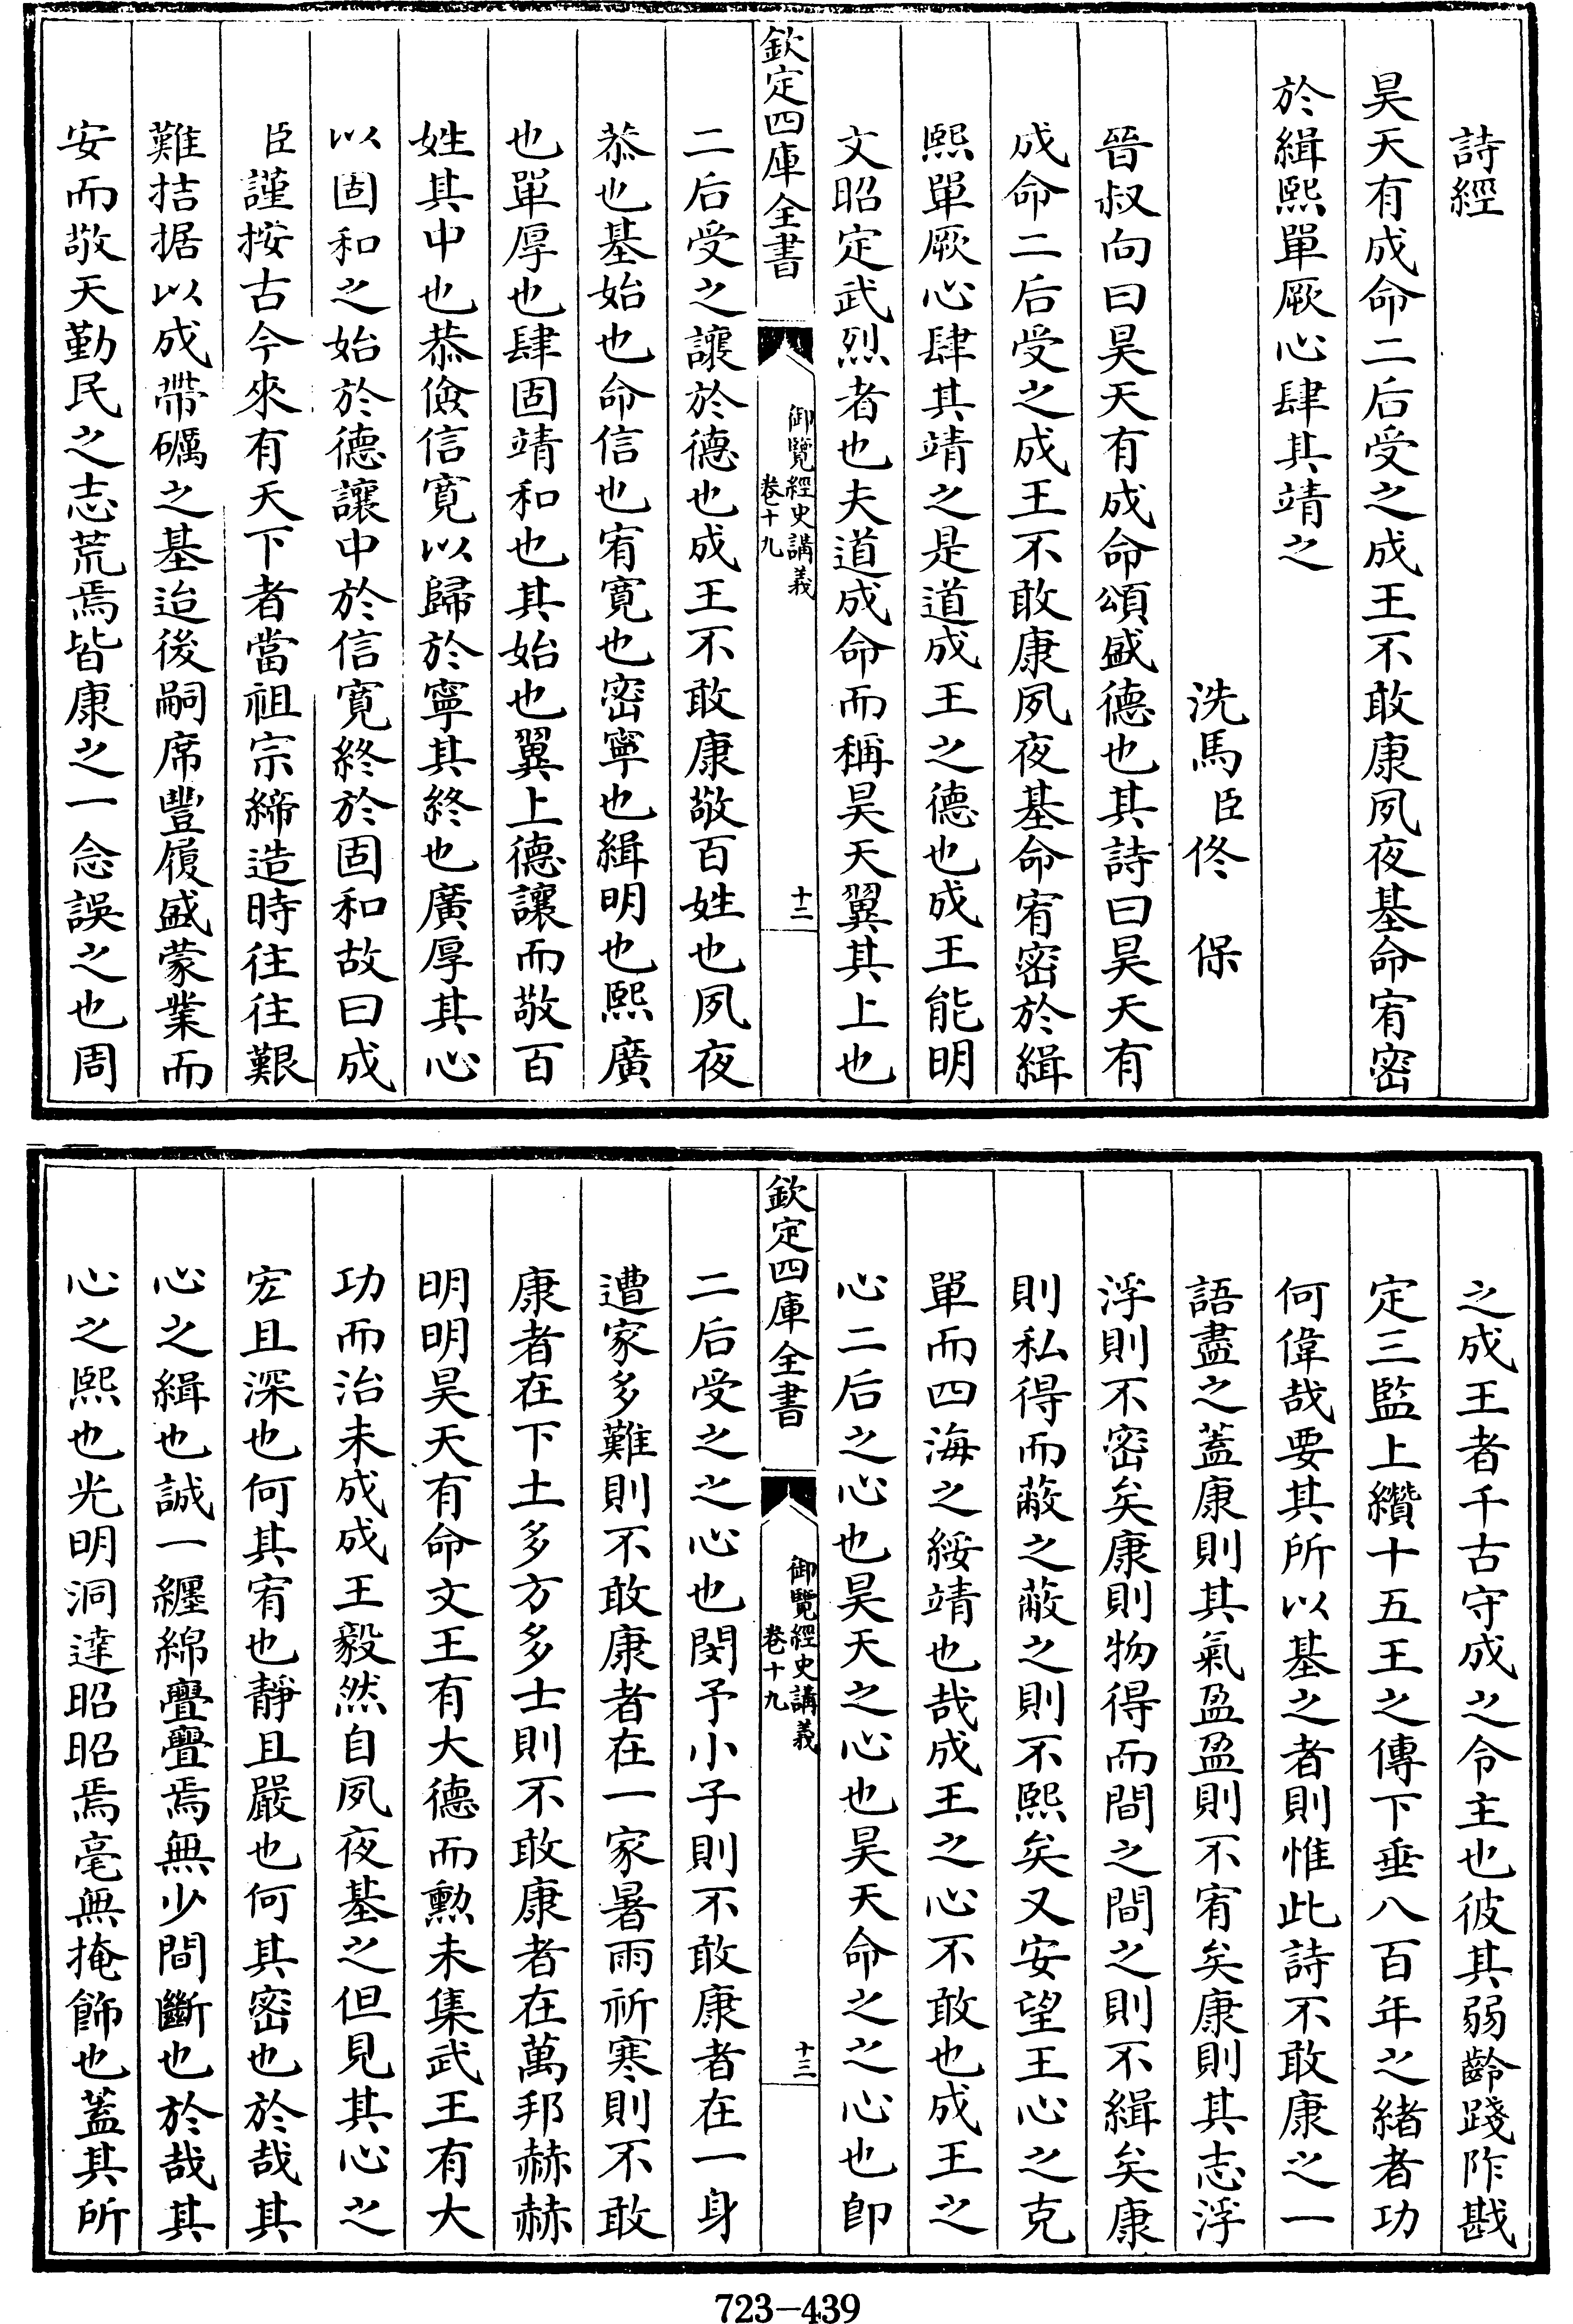 詩經
昊天有成命二后受之成王不敢康夙夜基命宥密
於緝熙單厥心肆其靖之
洗馬臣佟保
晉叔向曰昊天有成命頌盛德也其詩曰昊天有
成命二后受之成王不敢康夙夜基命宥密於緝
熙單厥心肆其靖之是道成王之德也成王能明
文昭定武烈者也夫道成命而稱昊天翼其上也
欽定四庫全書
御覽經史講義
卷十九
十二
二后受之讓於德也成王不敢康敬百姓也夙夜
恭也基始也命信也宥寬也密寧也緝明也熙廣
也單厚也肆固靖和也其始也翼上德讓而敬百
姓其中也恭儉信寬以歸於寧其終也廣厚其心
以固和之始於德讓中於信寬終於固和故曰成
臣謹按古今來有天下者當祖宗締造時往往艱
難拮据以成帶礪之基迨後嗣席豐履盛蒙業而
安而敬天勤民之志荒焉皆康之一念誤之也周
之成王者千古守成之令主也彼其弱齡踐阼戡
定三監上纘十五王之傳下垂八百年之緒者功
何偉哉要其所以基之者則惟此詩不敢康之一
語盡之蓋康則其氣盈盈則不宥矣康則其志浮
浮則不密矣康則物得而間之間之則不緝矣康
則私得而蔽之蔽之則不熙矣又安望王心之克
單而四海之綏靖也哉成王之心不敢也成王之
心二后之心也昊天之心也昊天命之之心也即
欽定四庫全書
御覽經史講義
卷十九
十三
二后受之之心也閔予小子則不敢康者在一身
遭家多難則不敢康者在一家暑雨祈寒則不敢
康者在下土多方多士則不敢康者在萬邦赫赫
明明昊天有命文王有大德而勳未集武王有大
功而治未成成王毅然自夙夜基之但見其心之
宏且深也何其宥也靜且嚴也何其密也於哉其
心之緝也誠一纏綿亹亹焉無少間斷也於哉其
心之熙也光明洞達昭昭焉毫無掩飾也蓋其所
723-439